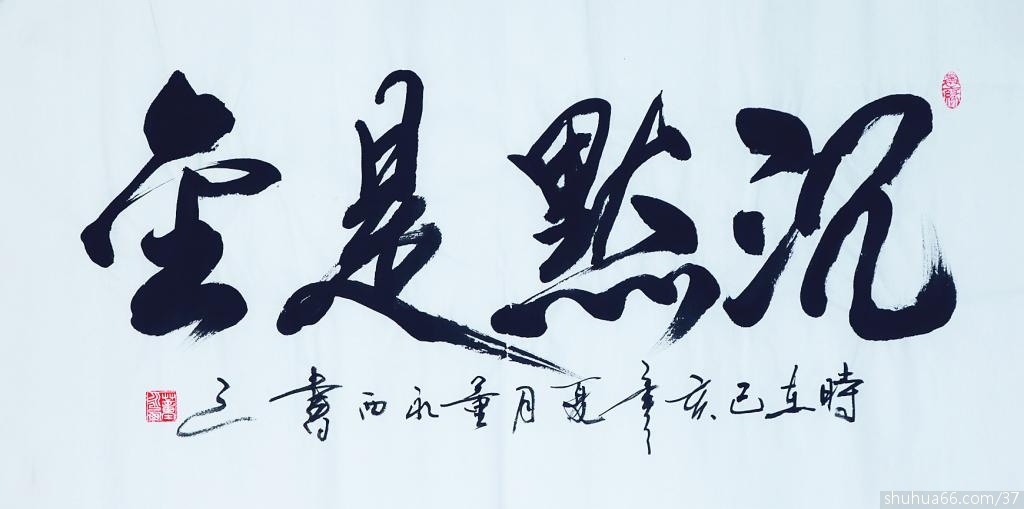 沉默是金
時在己亥年夏月董永西書之
shuhua66.com/37